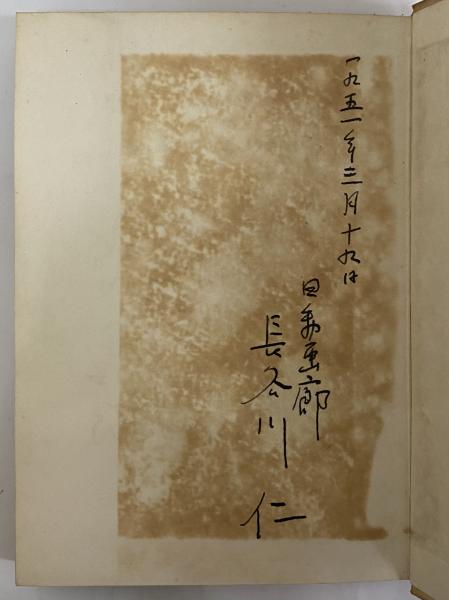 一九五一年三月十九日
日動画廊
長谷川 仁